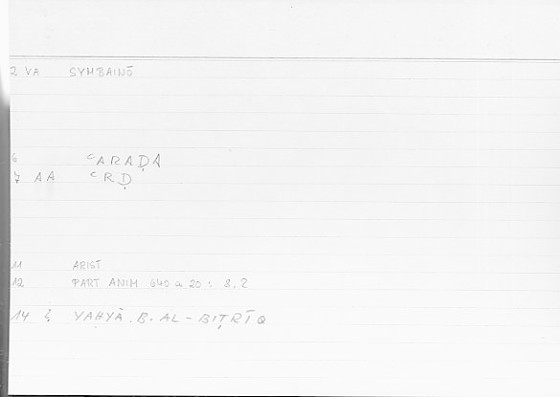 2 VA SYMBAINŌ
6 ʿARAḌA
7 AA ʿRḌ
11 ARIST
12 PART ANIM 640 a 20 : 8.2
14 YAḤYĀ . B. AL-BIṬRĪQ